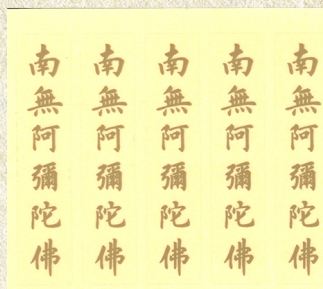 南無阿彌陀佛
南無阿彌陀佛
南無阿彌陀佛
南無阿彌陀佛
南無阿彌陀佛